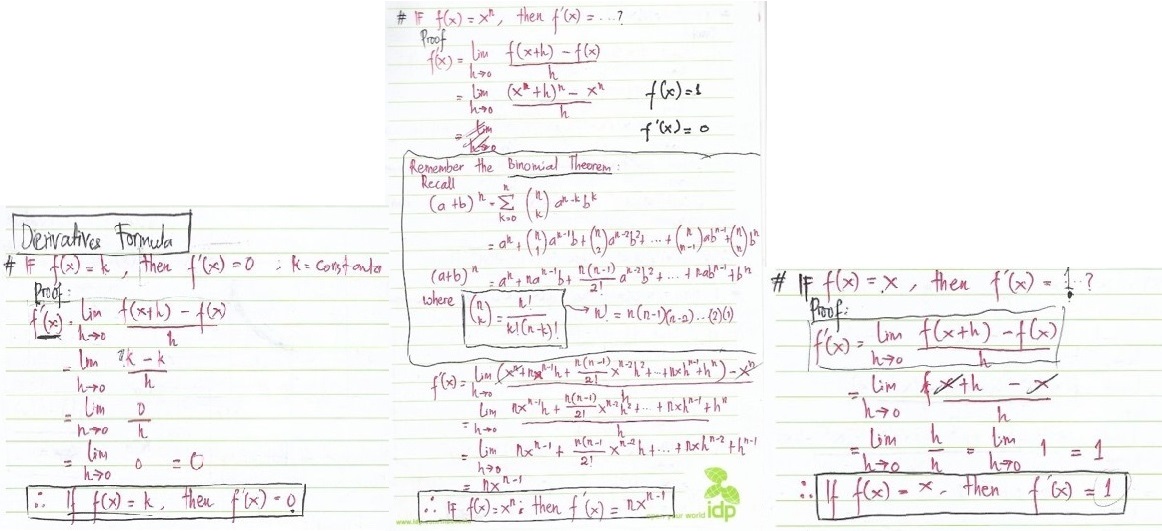 Derivatives Formula
# IF f(x) = k, then f'(x) = 0 ; k = constanta
Proof:
f'(x) = lim h→0 (f(x+h) - f(x))/h
= lim h→0 (k - k)/h
= lim h→0 0/h
= lim h→0 0 = 0
∴ If f(x) = k, then f'(x) = 0
# IF f(x) = xⁿ, then f'(x) = ...?
Proof
f'(x) = lim h→0 (f(x+h) - f(x))/h
= lim h→0 ((xⁿ+h)ⁿ - xⁿ)/h
f(x) = 1
f'(x) = 0
= lim h→0
Remember the Binomial Theorem:
Recall
(a+b)ⁿ = Σ_{k=0}^{n} (n k) a^{n-k} b^k
= aⁿ + (n 1) a^{n-1}b + (n 2) a^{n-2}b² + ... + (n n-1) ab^{n-1} + (n n) bⁿ
(a+b)ⁿ = aⁿ + na^{n-1}b + n(n-1)/2! a^{n-2}b² + ... + nab^{n-1} + bⁿ
where (n k) = n!/(k!(n-k)!) → n! = n(n-1)(n-2)...(2)(1)
f'(x) = lim h→0 ((xⁿ + nx^{n-1}h + n(n-1)/2! x^{n-2}h² + ... + nxh^{n-1} + hⁿ) - xⁿ)/h
= lim h→0 (nx^{n-1}h + n(n-1)/2! x^{n-2}h² + ... + nxh^{n-1} + hⁿ)/h
= lim h→0 nx^{n-1} + n(n-1/2! x^{n-2}h + ... + nxh^{n-2} + h^{n-1}
= nx^{n-1}
∴ IF f(x) = xⁿ; then f'(x) = nx^{n-1}
your world idp
# IF f(x) = x, then f'(x) = 1..?
Proof:
f'(x) = lim h→0 (f(x+h) - f(x))/h
= lim h→0 (x+h - x)/h
= lim h→0 h/h = lim h→0 1 = 1
∴ If f(x) = x, then f'(x) = 1